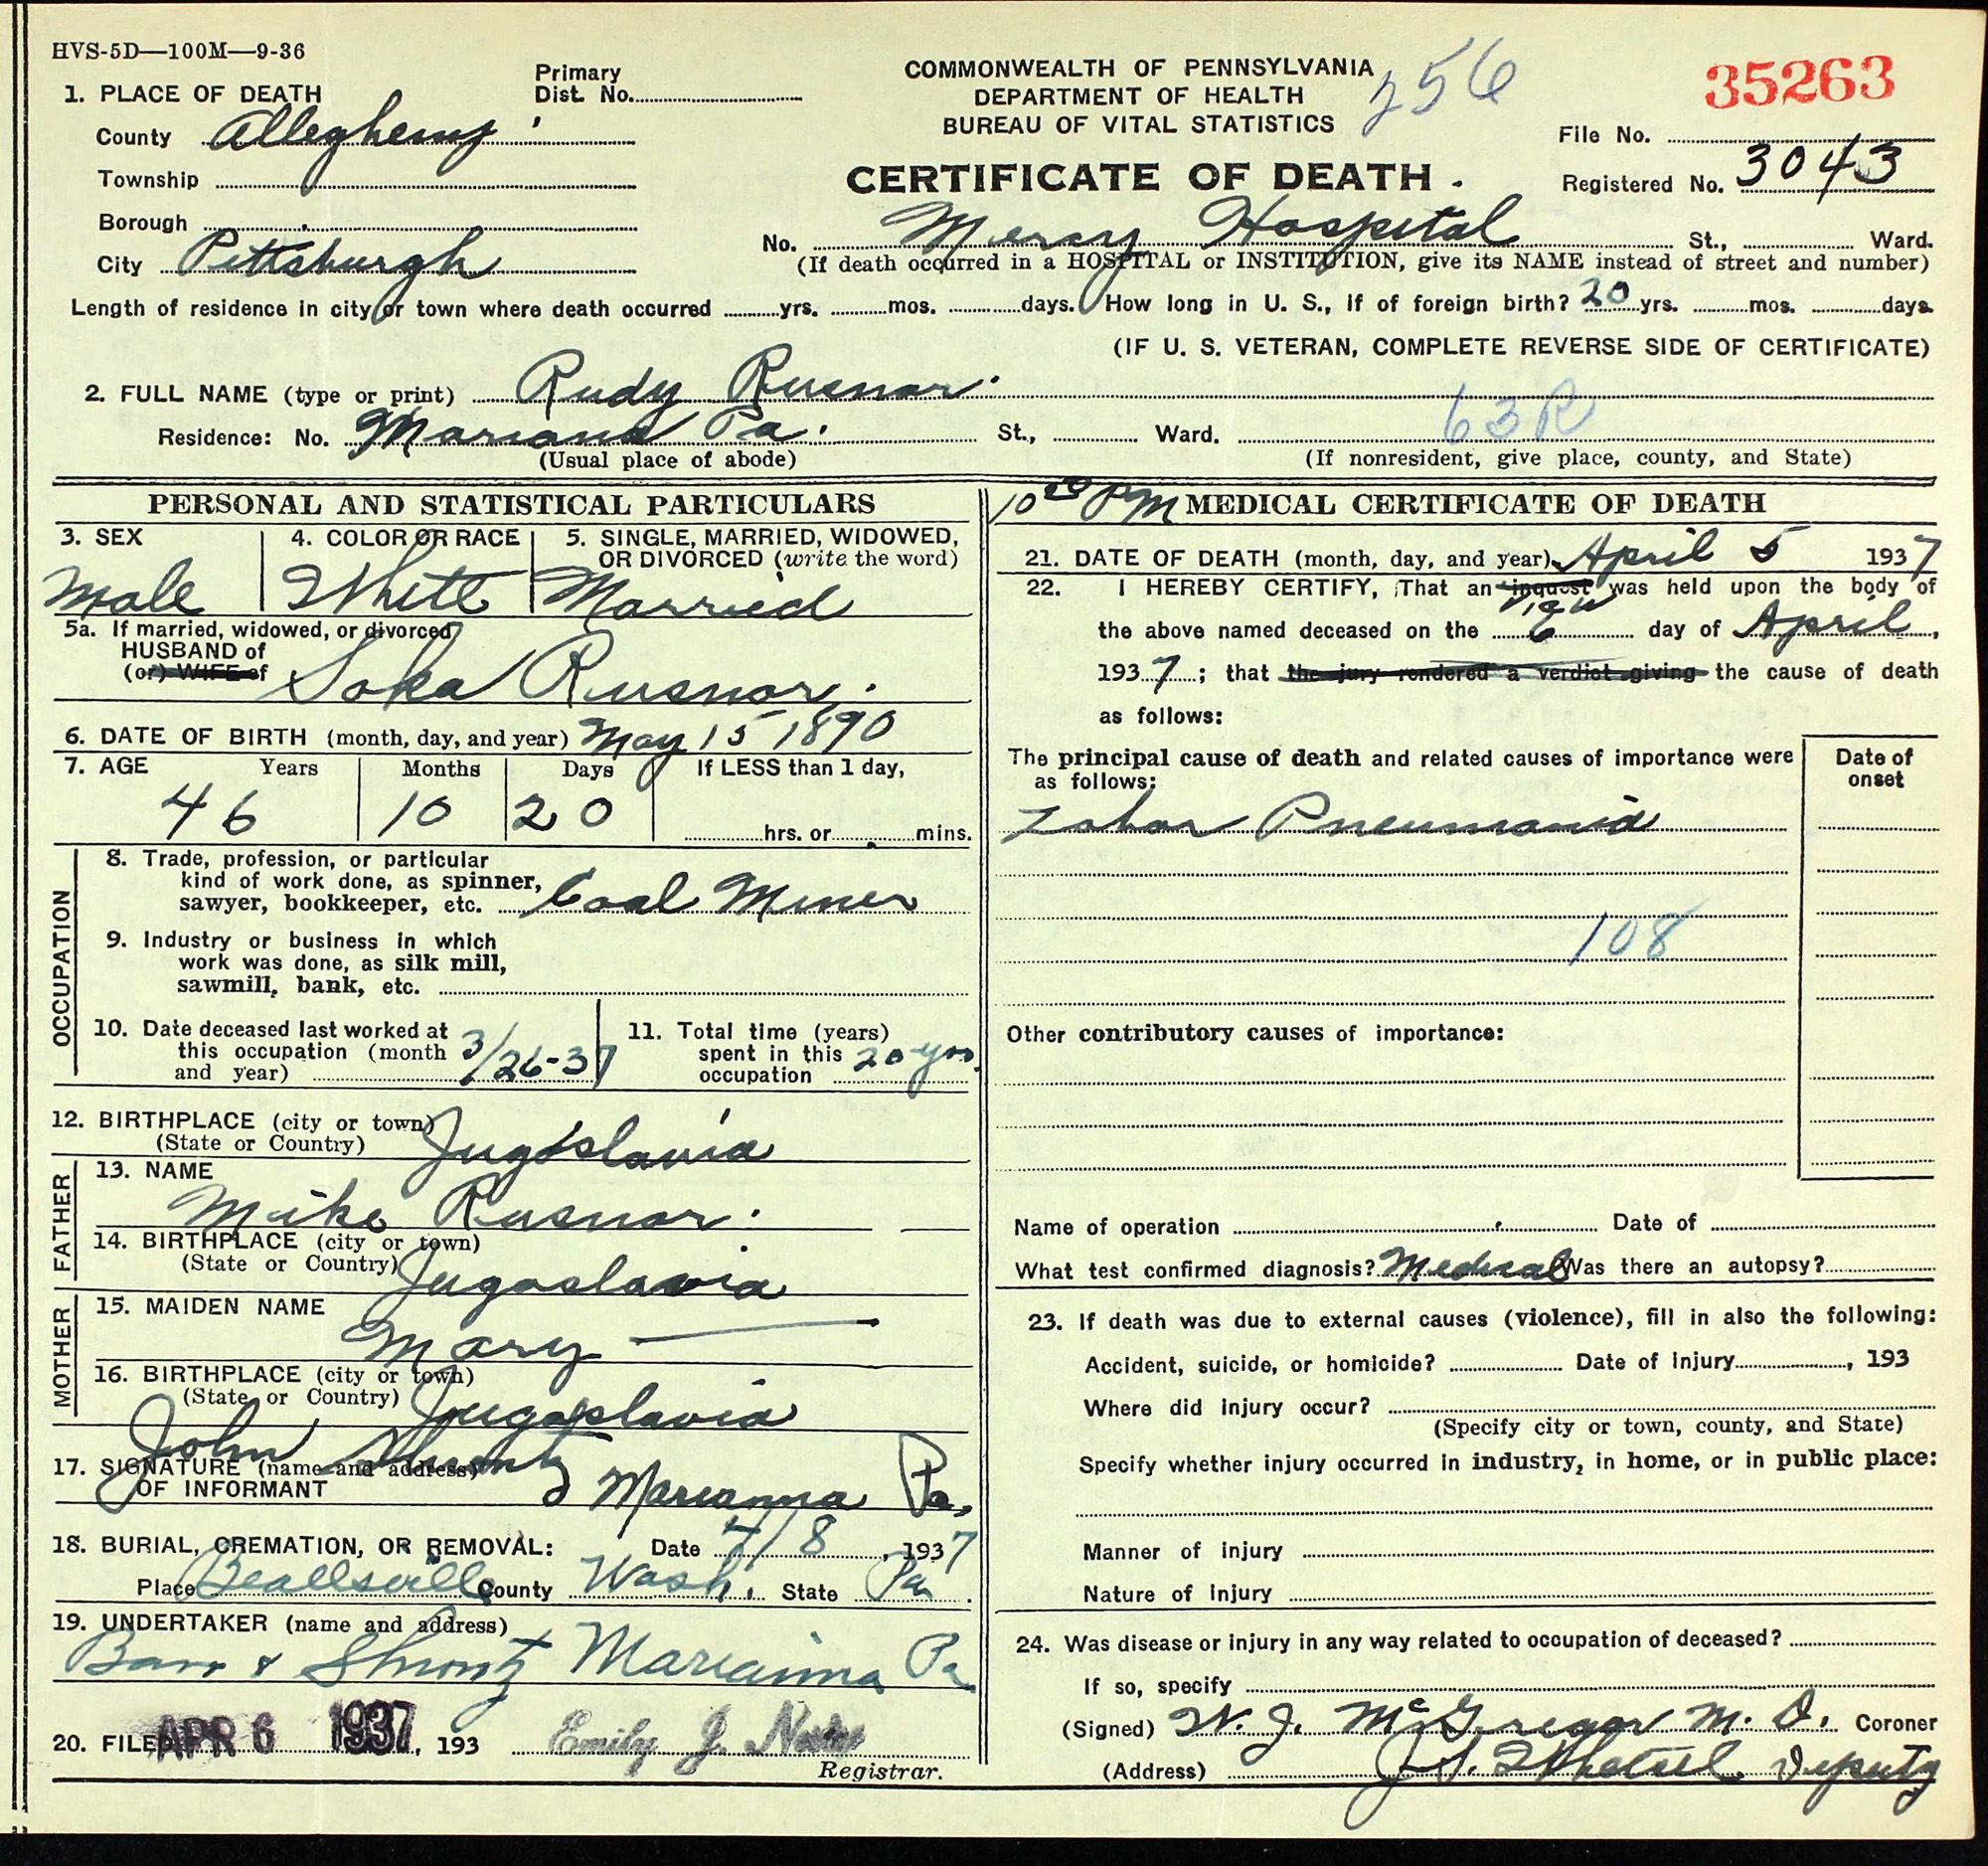 HVS-5D—100M—9-36
1. PLACE OF DEATH
Primary Dist. No.
County Allegheny
Township
Borough
City Pittsburgh
COMMONWEALTH OF PENNSYLVANIA
DEPARTMENT OF HEALTH
BUREAU OF VITAL STATISTICS
256
CERTIFICATE OF DEATH.
35263
File No.
Registered No. 3043
No. Mercy Hospital St., Ward.
(If death occurred in a HOSPITAL or INSTITUTION, give its NAME instead of street and number)
Length of residence in city or town where death occurred yrs. mos. days. How long in U. S., if of foreign birth? 20 yrs. mos. days.
(IF U. S. VETERAN, COMPLETE REVERSE SIDE OF CERTIFICATE)
2. FULL NAME (type or print) Rudy Rusnor.
63R
Residence: No. Mariana Pa. St., Ward.
(Usual place of abode) (If nonresident, give place, county, and State)
PERSONAL AND STATISTICAL PARTICULARS
3. SEX
Male
4. COLOR OR RACE
White
5. SINGLE, MARRIED, WIDOWED, OR DIVORCED (write the word)
Married
5a. If married, widowed, or divorced
HUSBAND of
(or) WIFE of Soka Rusnor.
6. DATE OF BIRTH (month, day, and year) May 15 1890
7. AGE Years Months Days If LESS than 1 day,
46 10 20 hrs. or mins.
OCCUPATION
8. Trade, profession, or particular
kind of work done, as spinner,
sawyer, bookkeeper, etc. Coal Miner
9. Industry or business in which
work was done, as silk mill,
sawmill, bank, etc.
10. Date deceased last worked at
this occupation (month
and year) 3/26-37
11. Total time (years)
spent in this
occupation 20 yrs.
12. BIRTHPLACE (city or town)
(State or Country) Jugoslavia
FATHER
13. NAME
Mike Rusnor.
14. BIRTHPLACE (city or town)
(State or Country) Jugoslavia
MOTHER
15. MAIDEN NAME
Mary —
16. BIRTHPLACE (city or town)
(State or Country) Jugoslavia
17. SIGNATURE (name and address)
OF INFORMANT
John Shrontz Marianna Pa.
18. BURIAL, CREMATION, OR REMOVAL: Date 4/8, 1937
Place Beallsville County Wash. State Pa.
19. UNDERTAKER (name and address)
Barr & Shrontz Marianna Pa
20. FILED APR 6 1937, 193 Emily J.
Registrar.
10 PM MEDICAL CERTIFICATE OF DEATH
21. DATE OF DEATH (month, day, and year) April 5 1937
22. I HEREBY CERTIFY, That an inquest view was held upon the body of
the above named deceased on the 6 day of April,
1937; that the jury rendered a verdict giving the cause of death
as follows:
The principal cause of death and related causes of importance were
as follows:
Date of onset
Lobar Pneumonia
108
Other contributory causes of importance:
Name of operation Date of
What test confirmed diagnosis? Medical Was there an autopsy?
23. If death was due to external causes (violence), fill in also the following:
Accident, suicide, or homicide? Date of injury, 193
Where did injury occur?
(Specify city or town, county, and State)
Specify whether injury occurred in industry, in home, or in public place:
Manner of injury
Nature of injury
24. Was disease or injury in any way related to occupation of deceased?
If so, specify
(Signed) W. J. McGregor M. D. Coroner
(Address) Deputy